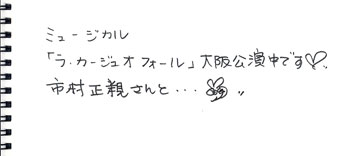 ミュージカル
「ラ・カージュオフォール」大阪公演中です♡.
市村正親さんと・・・